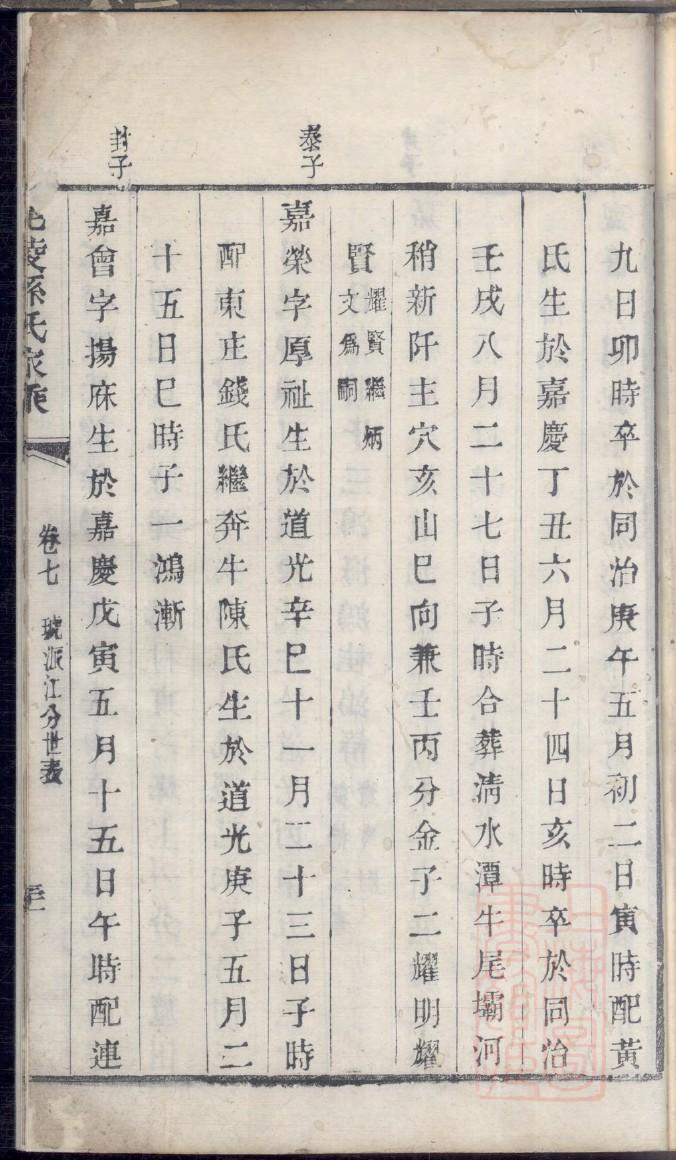 九日卯時卒於同治庚午五月初二日寅時配黃
氏生於嘉慶丁丑六月二十四日亥時卒於同治
壬戌八月二十七日子時合葬清水潭牛尾壩河
稍新阡主穴亥山巳向兼壬丙分金子二耀明耀
賢
耀賢繼炳
文爲嗣
泰子
嘉榮字厚祉生於道光辛巳十一月二十三日子時
配東庄錢氏繼奔牛陳氏生於道光庚子五月二
十五日巳時子一鴻漸
封子
嘉會字揚庥生於嘉慶戊寅五月十五日午時配連
毘陵孫氏家乘
卷七 琥派江分世表